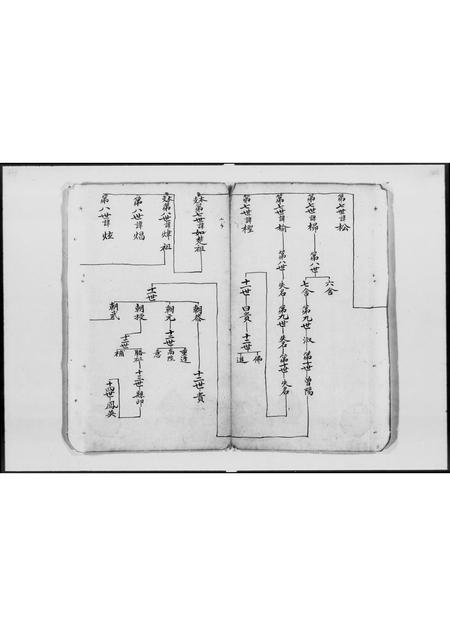 第七世諱松
第七世諱梯
第八世
六合
七合
第九世
淑
第十世
曾陽
第七世諱榆
第八世
失名
第九世
失名
第十世
失名
第七世諱樫
十一世
曰貴
十二世
佛
進
支本第七世諱如楚祖
支本第八世諱煒祖
第八世諱熖
第八世諱炫
十一世
朝發
十二世
貴
朝元
十二世
重達
高陞
意
朝
十二世
勝
十三世
補
十四世
鳳英
朝武